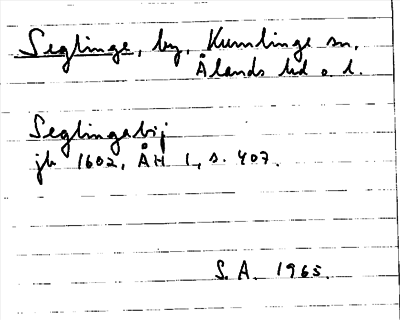 Seglinge, by, Kumlinge sn,
Ålands hd o. l.
Seglingabij
jb 1602, ÅH 1, s. 407.
S. A. 1965.